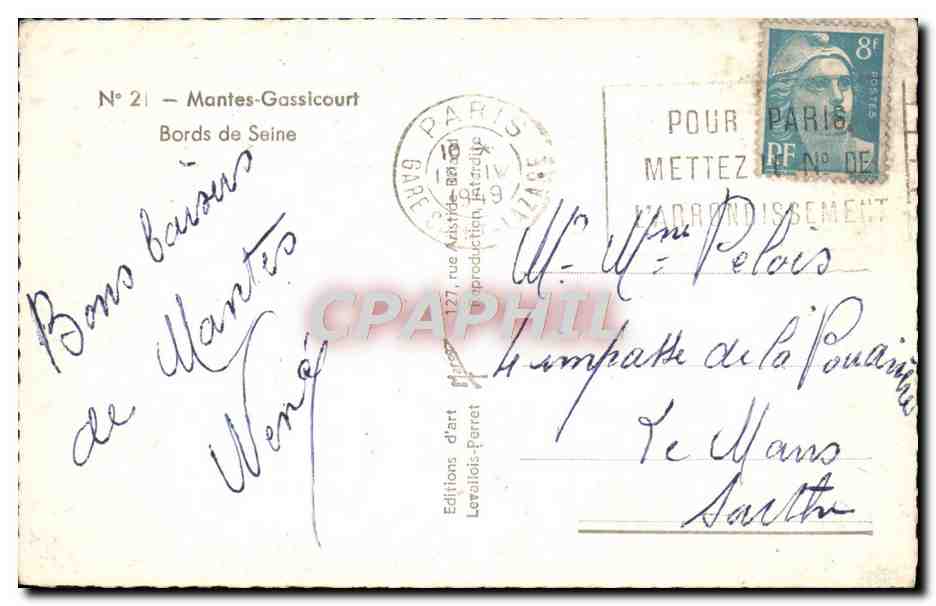 N° 21 – Mantes-Gassicourt
Bords de Seine
Bons baisers
de Mantes
PARIS
10 X
1949
GARE LAZARE
POUR PARIS
METTEZ LE N° DE
L'ARRONDISSEMENT
8F
POSTES
RF
Editions d'art 127, rue Aristide Briand
Levallois-Perret Reproduction interdite
CPAPHIL
Mr Mme Pelois
4 impasse de la Poudrière
Le Mans
Sarthe